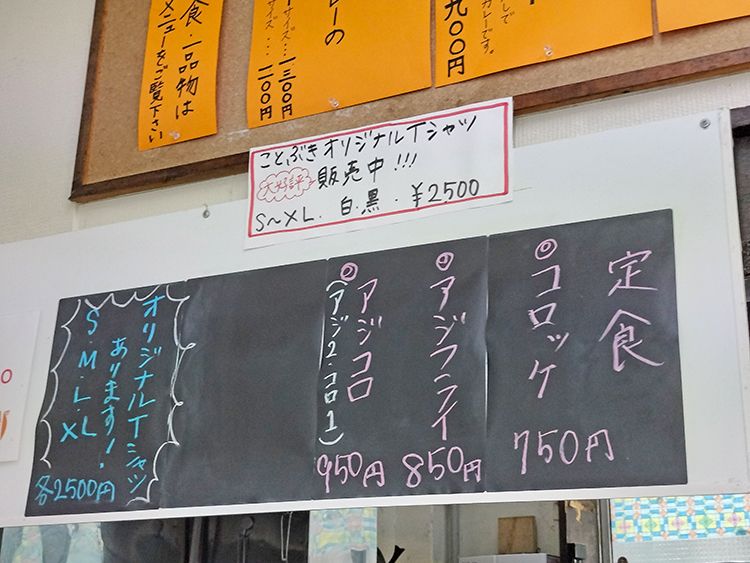 食・一品物は
メニューをご覧下さい
レーの
サイズ…一三〇〇円
ズ…二〇〇円
しで
カレーです。
九〇〇円
ことぶきオリジナルTシャツ
大好評
販売中!!!
S〜XL. 白.黒. ¥2500
定食
◎コロッケ 750円
◎アジフライ 850円
◎アジコロ
(アジ2・コロ1)
950円
オリジナルTシャツ
あります!.
S・M・L・XL
各2500円